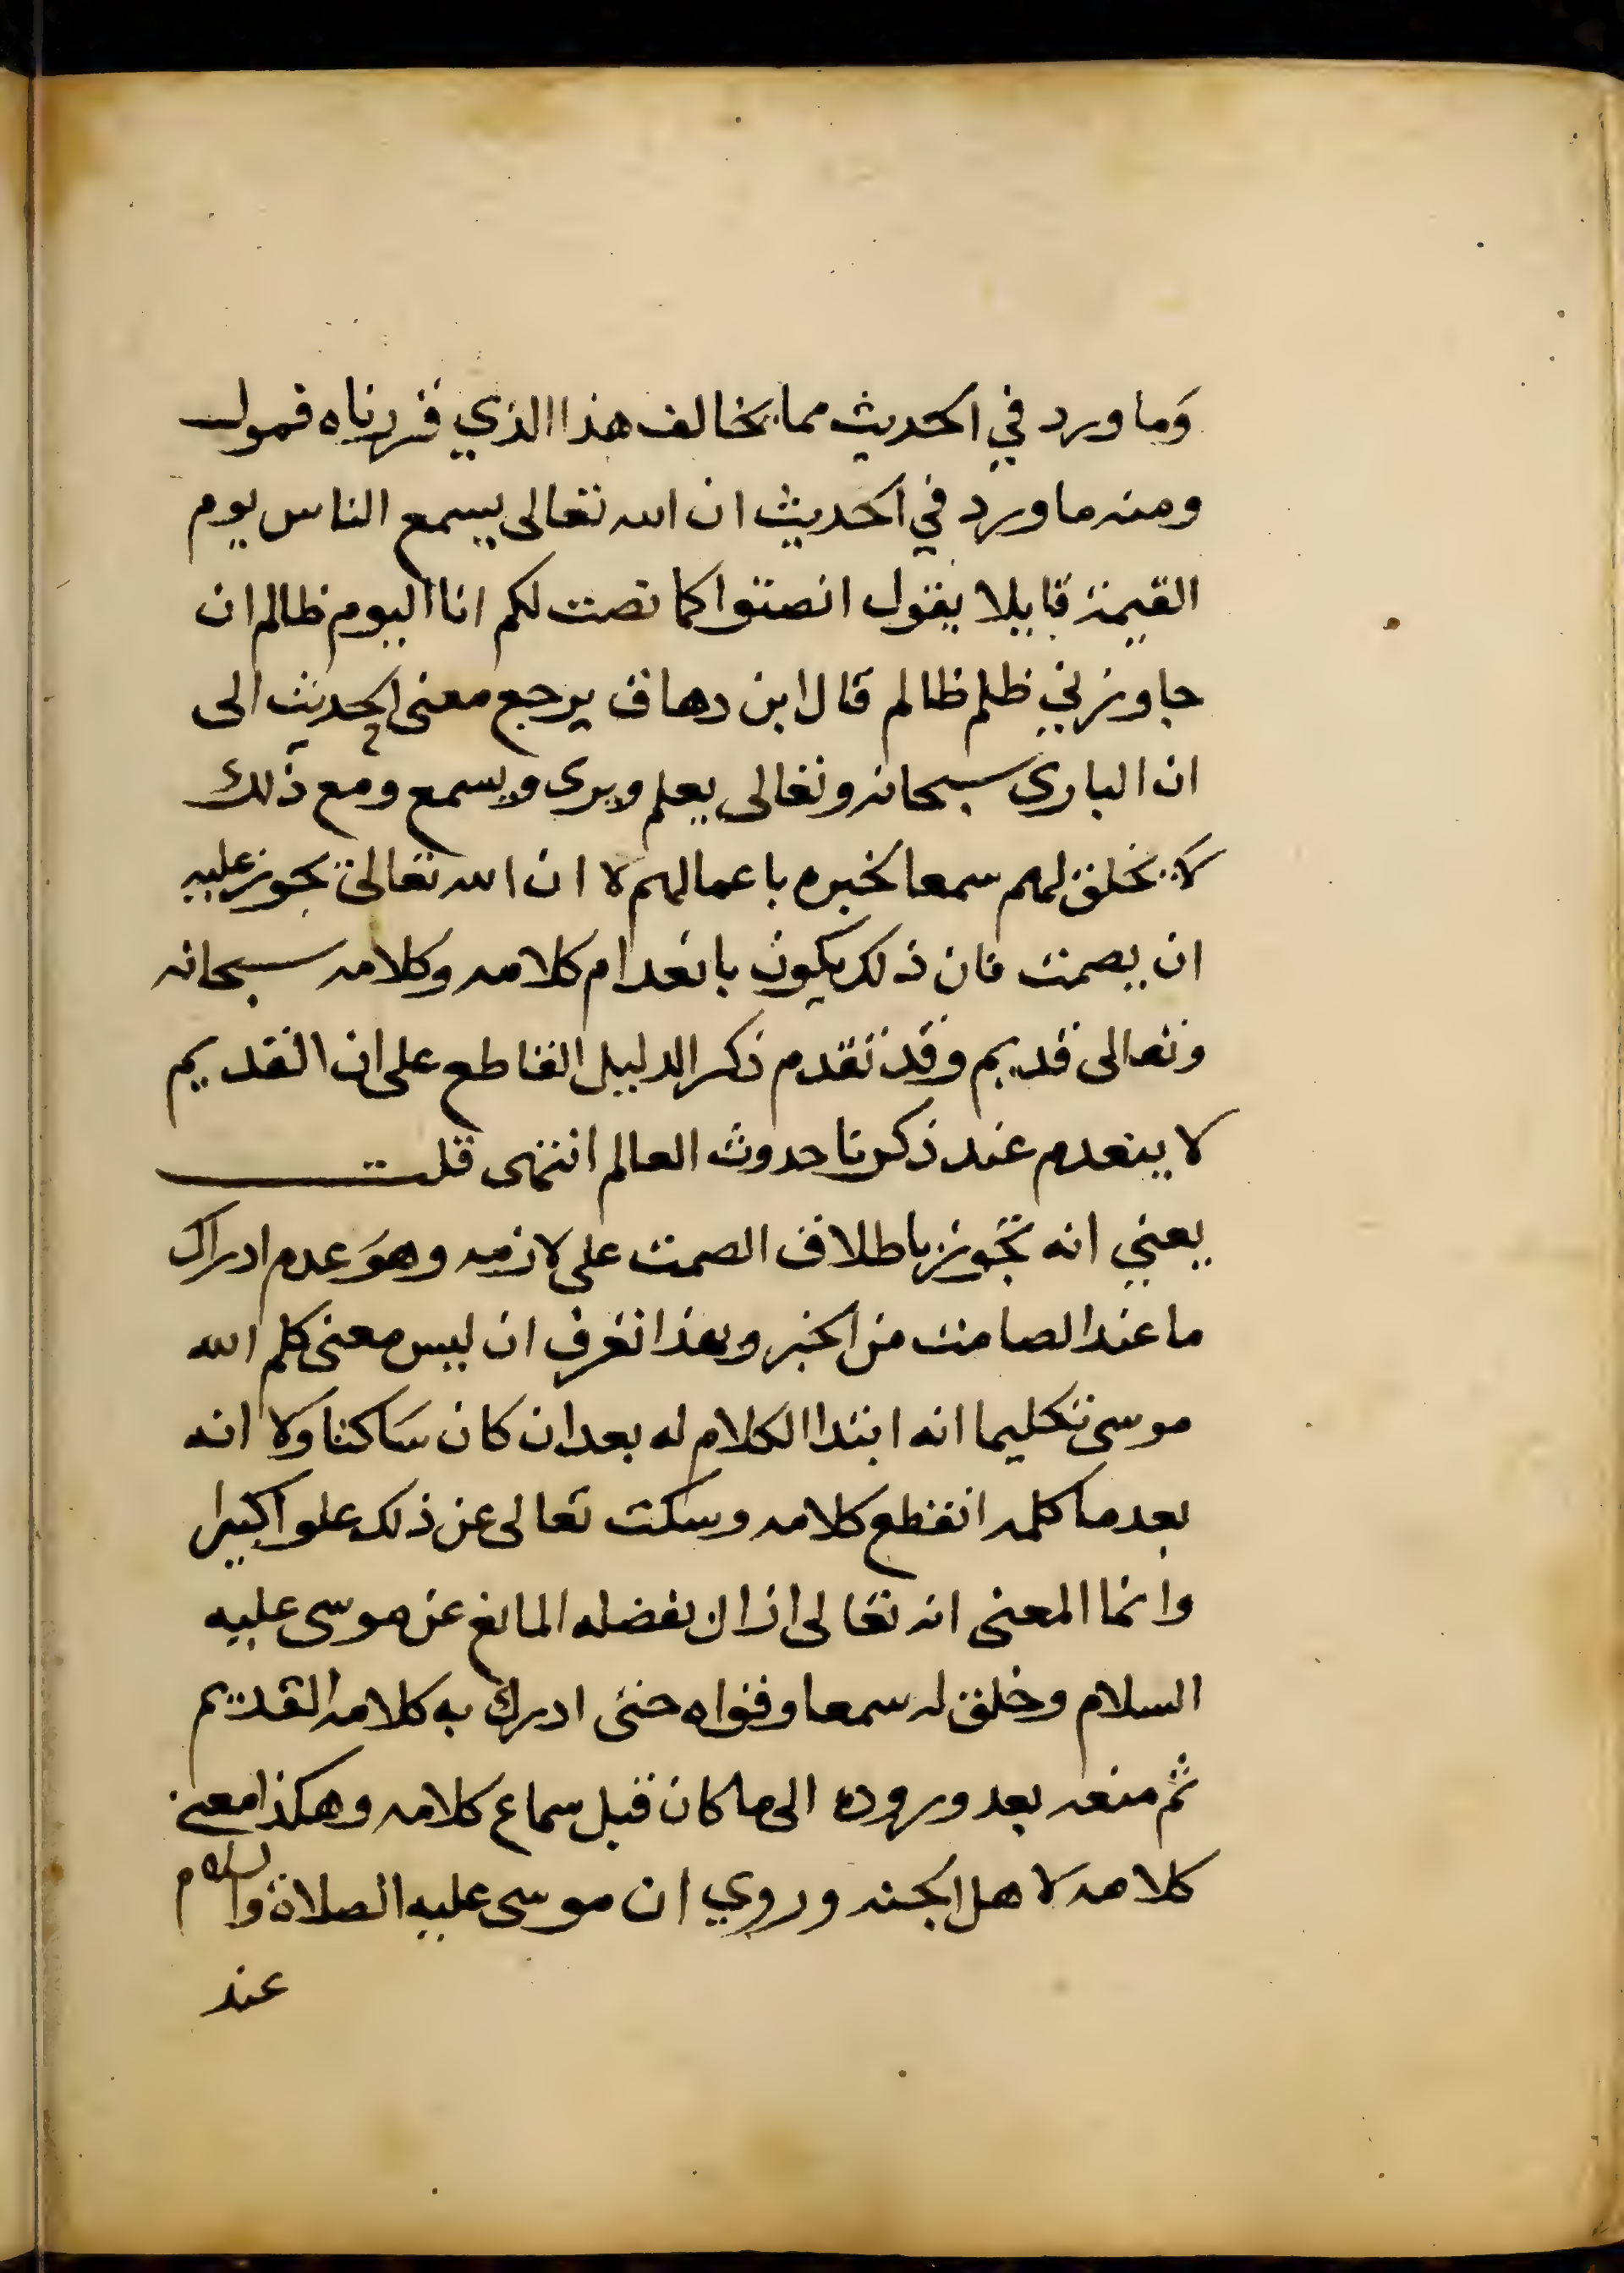 وما ورد في الحديث مما يخالف هذا الذي قررناه فمول
ومنه ما ورد في الحديث ان الله تعالى يسمع الناس يوم
القيمة قايلا يقول انصتوا كما نصت لكم انا اليوم ظالم ان
جاوزني ظلم ظالم قال ابن دهاق يرجع معنى الحديث الى
ان الباري سبحانه وتعالى يعلم ويرى ويسمع ومع ذلك
لا يخلق لهم سمعا لخبره باعمالهم لا ان الله تعالى يجوز عليه
ان يصمت فان ذلك يكون بانعدام كلامه وكلامه سبحانه
وتعالى قديم وقد تقدم ذكر الدليل القاطع على ان القديم
لا ينعدم عند ذكرنا حدوث العالم انتهى قلت
يعني انه تجوز باطلاق الصمت على لازمه وهو عدم ادراك
ما عند الصامت من الخبر وبهذا تعرف ان ليس معنى كلم الله
موسى تكليما انه ابتدا الكلام له بعد ان كان ساكتا ولا انه
بعد ما كلمه انقطع كلامه وسكت تعالى عن ذلك علوا كبيرا
وانما المعنى انه تعالى ازال بفضله المانع عن موسى عليه
السلام وخلق له سمعا وقواه حتى ادرك به كلامه القديم
ثم منعه بعد ورده الى ما كان قبل سماع كلامه وهكذا معنى
كلامه لاهل الجنه وروي ان موسى عليه الصلاة والسلام
عند